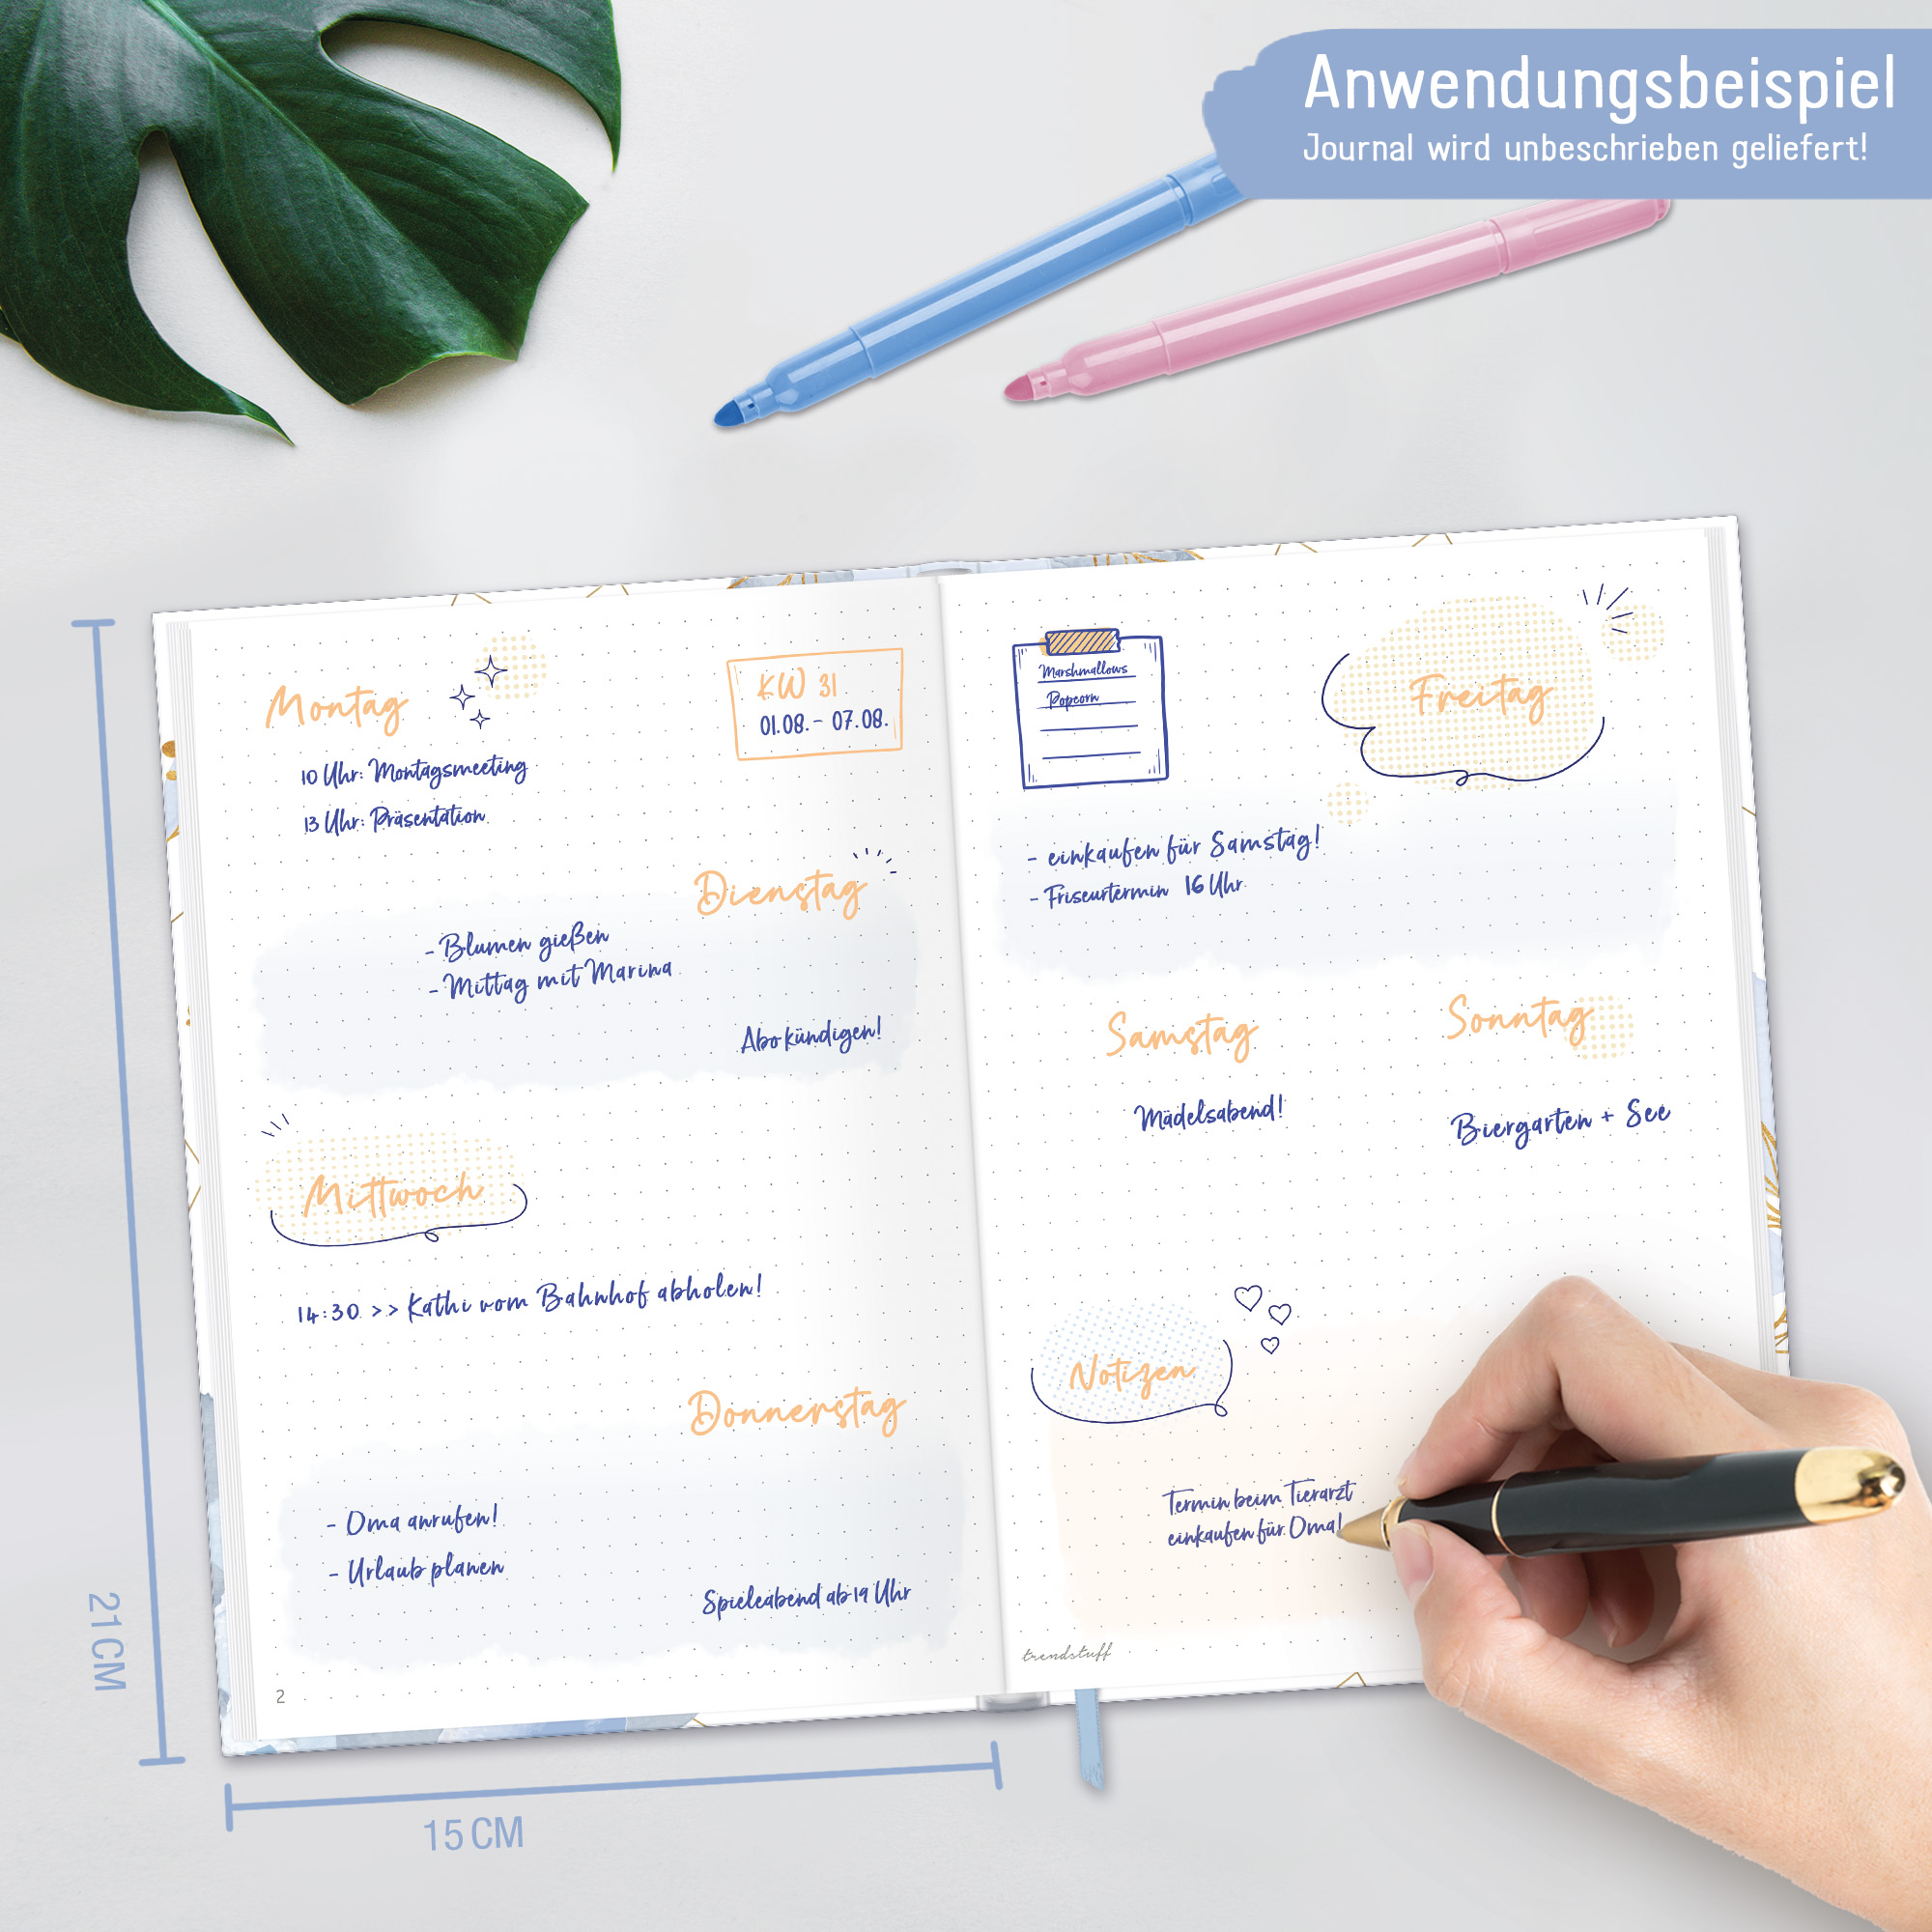 Anwendungsbeispiel
Journal wird unbeschrieben geliefert!
Montag
KW 31
01.08. - 07.08.
10 Uhr: Montagsmeeting
13 Uhr: Präsentation
Dienstag
- Blumen gießen
- Mittag mit Marina
Abo kündigen!
Mittwoch
14:30 >> Kathi vom Bahnhof abholen!
Donnerstag
- Oma anrufen!
- Urlaub planen
Spieleabend ab 19 Uhr
2
Marshmallows
Popcorn
Freitag
- einkaufen für Samstag!
- Friseurtermin 16 Uhr
Samstag
Mädelsabend!
Sonntag
Biergarten + See
Notizen
Termin beim Tierarzt
einkaufen für Oma!
trendstuff
21 CM
15 CM